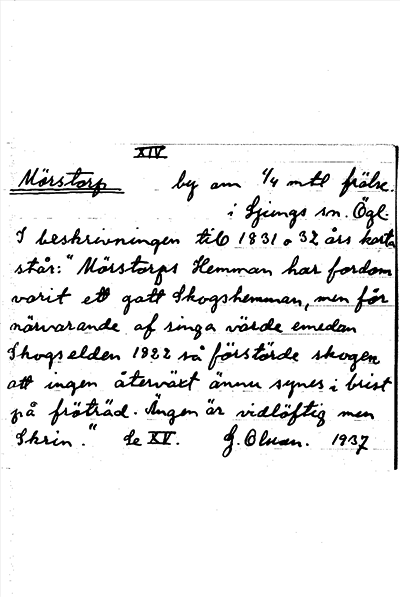 XIV
Mörstorp by om 1/4 mtl frälse.
i Ljungs sn. Ögl.
I beskrivningen till 1831 o 32 års karta
står: "Mörstorps Hemman har fordom
varit ett gatt Skogshemman, men för
närvarande af ringa värde emedan
Skogselden 1822 så förstörde skogen
att ingen återväxt ännu synes i brist
på fröträd. Ängen är vidlöftig men
Skrin." Se XV. G. Olsson. 1937